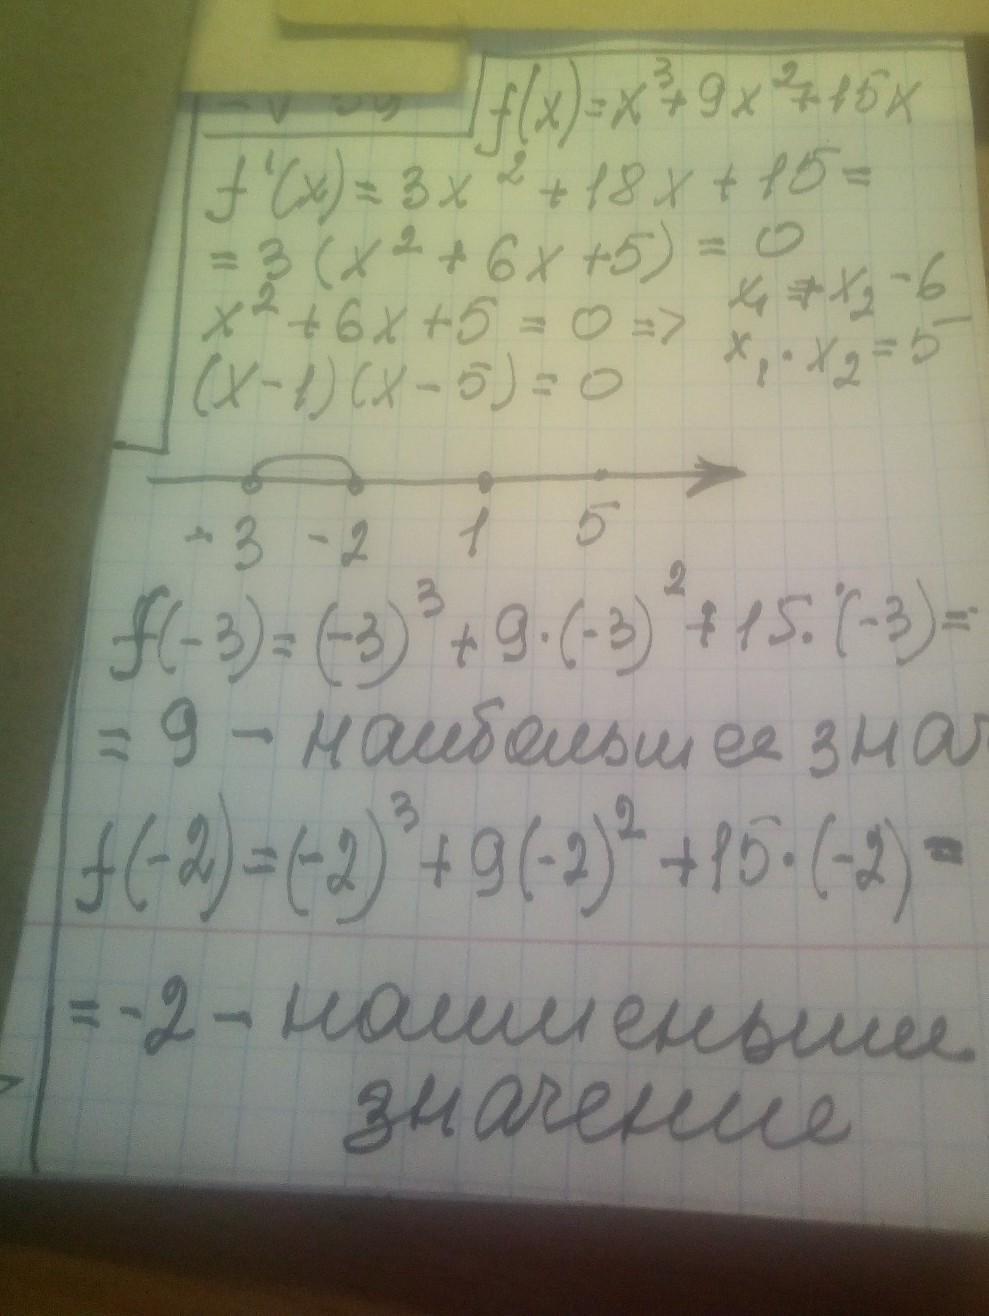 f(x)=x³+9x²+15x
f'(x)=3x²+18x+15=
=3(x²+6x+5)=0
x₁+x₂-6
x²+6x+5=0=>
x₁·x₂=5
(x-1)(x-5)=0
-3 -2 1 5
f(-3)=(-3)³+9·(-3)²+15·(-3)=
=9-наибольшее знач
f(-2)=(-2)³+9(-2)²+15·(-2)=
=-2-наименьшее
значение